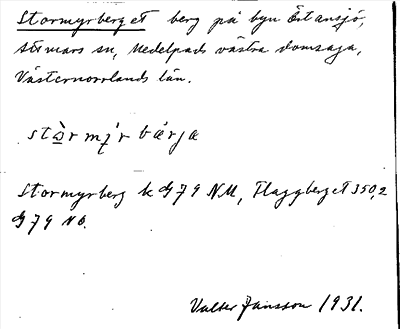 Stormyrberget berg på byn Östansjö,
Attmars sn, Medelpads västra domsaga,
Västernorrlands län.
stò̱rmỳ̨rbärja
Stormyrberg k G79 NM, Flaggberget 350,2
G79 NÖ.
Valter Jansson 1931.